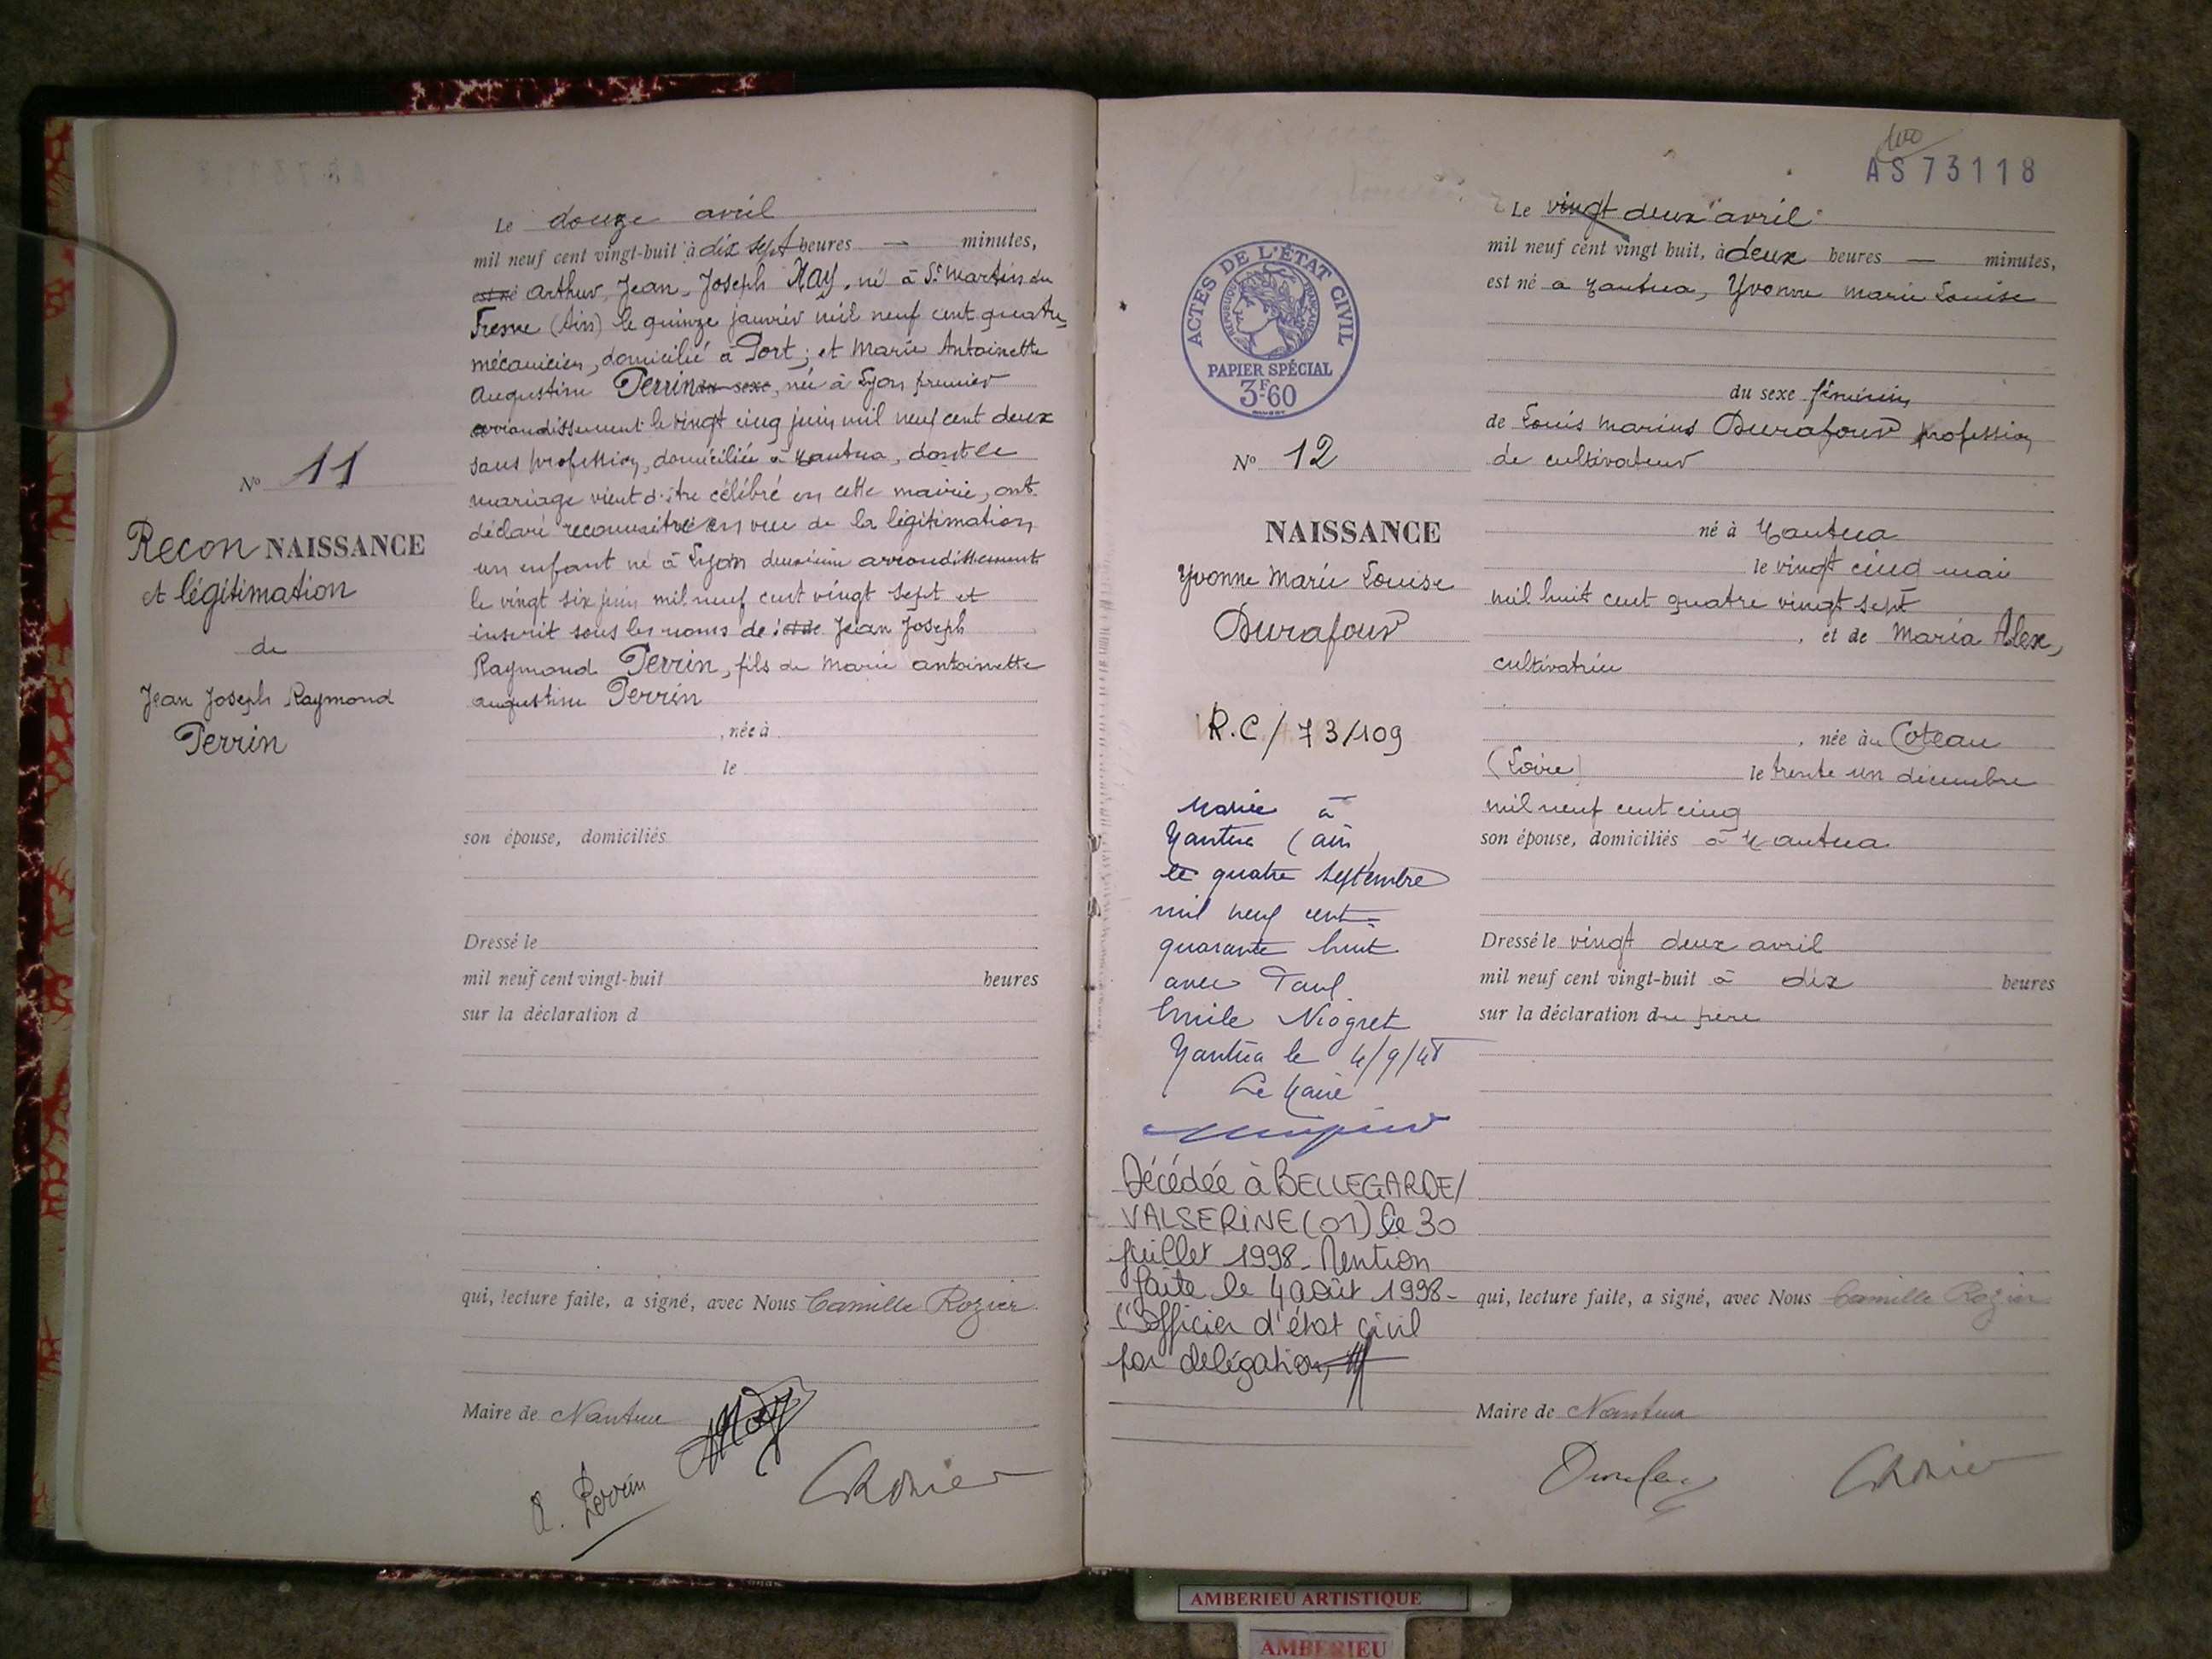 Le douze avril
mil neuf cent vingt-huit à dix sept heures — minutes,
est né Arthur, Jean, Joseph May, né à St Martin du
Fresne (Ain) le quinze janvier mil neuf cent quatre,
mécanicien, domicilié à Port; et Marie Antoinette
Augustine Perrin du sexe, née à Lyon premier
arrondissement le vingt cinq juin mil neuf cent deux
sans profession, domiciliée à Nantua, dont le
mariage vient d'être célébré en cette mairie, ont
déclaré reconnaître en vue de la légitimation
un enfant né à Lyon deuxième arrondissement
le vingt six juin mil neuf cent vingt sept et
inscrit sous les noms de : et de Jean Joseph
Raymond Perrin, fils de Marie Antoinette
Augustine Perrin
, née à
le
son épouse, domiciliés
Dressé le
mil neuf cent vingt-huit heures
sur la déclaration d
qui, lecture faite, a signé, avec Nous Camille Rozier
Maire de Nantua
A. Perrin
CRozier
N° 11
Recon NAISSANCE
et légitimation
de
Jean Joseph Raymond
Perrin
100
AS 73118
ACTES DE L'ÉTAT CIVIL
RÉPUBLIQUE FRANÇAISE
PAPIER SPÉCIAL
3F.60
N° 12
NAISSANCE
Yvonne Marie Louise
Durafour
R.C/73/109
Mariée à
Nantua (Ain)
le quatre septembre
mil neuf cent
quarante huit
avec Paul
Emile Niogret
Nantua le 4/9/48
Le Maire
Décédée à BELLEGARDE/
VALSERINE (01) le 30
juillet 1998. Mention
faite le 4 août 1998-
l'Officier d'état civil
par délégation,
Le vingt deux avril
mil neuf cent vingt huit, à deux heures — minutes,
est né à Nantua, Yvonne Marie Louise
du sexe féminin
de Louis Marius Durafour profession
de cultivateur
né à Nantua
le vingt cinq mai
mil huit cent quatre vingt sept
, et de Maria Alex,
cultivatrice
, née au Coteau
(Loire) le trente un décembre
mil neuf cent cinq
son épouse, domiciliés à Nantua
Dressé le vingt deux avril
mil neuf cent vingt-huit à dix heures
sur la déclaration du père
qui, lecture faite, a signé, avec Nous Camille Rozier
Maire de Nantua
CRozier
AMBERIEU ARTISTIQUE
AMBERIEU